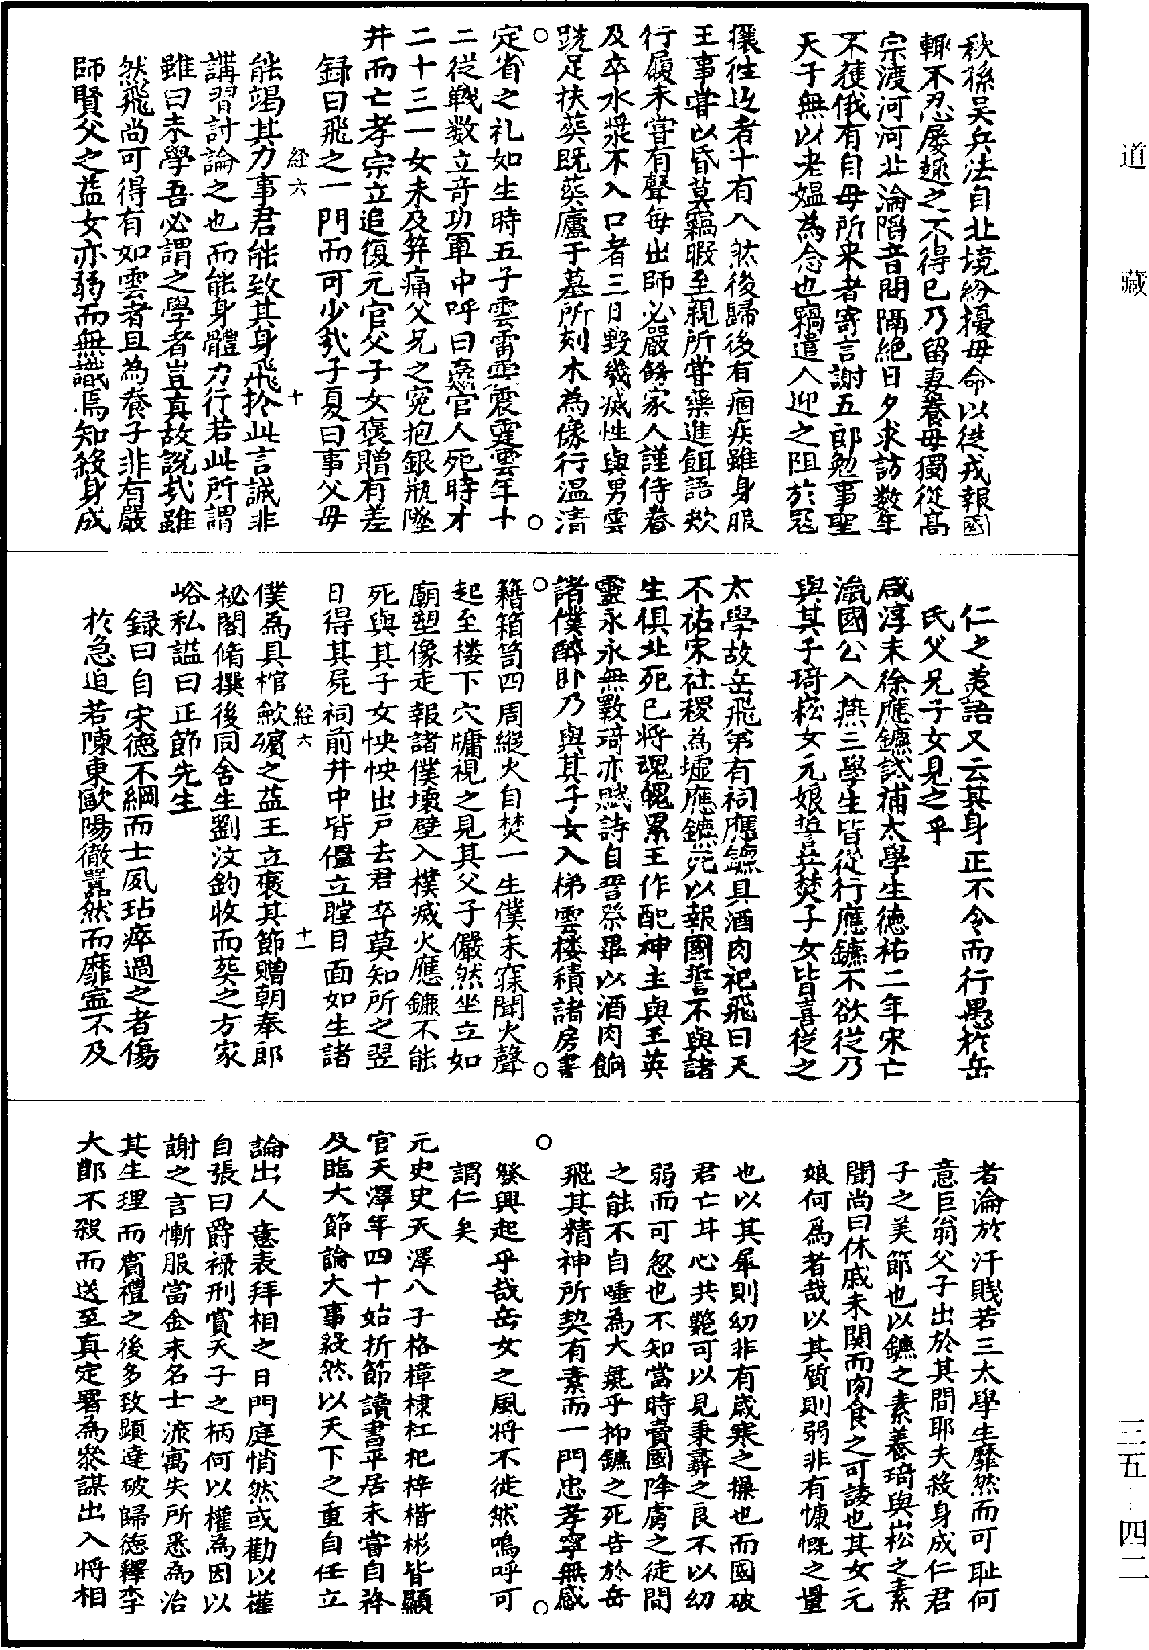 道藏
三五—四二
秋孫吳兵法自北境紛擾母命以從戎報國
輒不忍屡趣之不得已乃留妻養母獨從高
宗渡河河北淪陷音問隔絕日夕求訪数年
不獲俄有自母所来者寄言謝五郎勉事聖
天子無以老媪為念也竊遣人迎之阻於冦
攘徃返者十有八然後歸後有痼疾雖身服
王事嘗以昏莫竊暇至親所嘗藥進餌語欬
行履未嘗有聲每出師必嚴飭家人謹侍養
及卒水漿不入口者三日毀幾滅性與男雲
跣足扶葬既葬廬于墓所刻木為像行温凊
定省之礼如生時五子雲雷霖震霆雲年十
二從戰数立竒功軍中呼曰嬴官人死時才
二十三一女未及笄痛父兄之冤抱銀瓶墜
井而亡孝宗立追復元官父子女褒贈有差
録曰飛之一門而可少㢤子夏曰事父母
經六　十
能竭其力事君能致其身飛於此言誠非
講習討論之也而能身體力行若此所謂
雖曰未學吾必謂之學者豈真故說㢤雖
然飛尚可得有如雲者且為養子非有嚴
師賢父之益女亦弱而無識焉知殺身成
仁之美語又云其身正不令而行愚於岳
氏父兄子女見之乎
咸淳末徐應鑣試補太學生德祐二年宋亡
瀛國公入燕三學生皆從行應鑣不欲從乃
與其子琦崧女元娘誓共焚子女皆喜從之
太學故岳飛第有祠應鑣具酒肉祀飛曰天
不祐宋社稷為墟應鑣死以報國誓不與諸
生俱北死已将魂魄累王作配神主與王英
靈永永無斁琦亦賦詩自誓祭畢以酒肉餉
諸僕醉卧乃與其子女入梯雲楼積諸房書
籍箱笥四周縱火自焚一生僕未寐聞火聲
起至楼下穴牖視之見其父子儼然坐立如
廟塑像走報諸僕壊壁入撲滅火應鑣不能
死與其子女怏怏出戸去君卒莫知所之翌
日得其屍祠前井中皆僵立瞠目面如生諸
經六　十一
僕為具棺歛殯之益王立褒其節贈朝奉郎
祕閣脩撰後同舍生劉汶鈞收而葬之方家
峪私謚曰正節先生
録曰自宋德不綱而士夙玷瘁過之者傷
於急迫若陳東歐陽徹囂然而靡寍不及
者淪於汗賤若三太學生靡然而可耻何
意巨翁父子出於其間耶夫殺身成仁君
子之美節也以鑣之素養琦與崧之素
聞尚曰休戚未関而肉食之可諉也其女元
娘何為者哉以其質則弱非有慷慨之量
也以其犀則幼非有歲寒之操也而國破
君亡耳心共斃可以見秉彛之良不以幼
弱而可忽也不知當時賣國降虜之徒間
之能不自唾為犬彘乎抑鑣之死告於岳
飛其精神所契有素而一門忠孝寧無感
發興起乎哉岳女之風将不徙然嗚呼可
謂仁矣
元史史天澤八子格樟棣杠杞梓楷彬皆顯
官天澤年四十始折節讀書平居未嘗自詫
及臨大節論大事毅然以天下之重自任立
論出人意表拜相之日門庭悄然或勸以權
自張曰爵禄刑賞天子之柄何以權為因以
謝之言慚服當金末名士流寓失所悉為治
其生理而賓禮之後多致顯達破歸德釋李
大郎不殺而送至真定署為叅謀出入将相